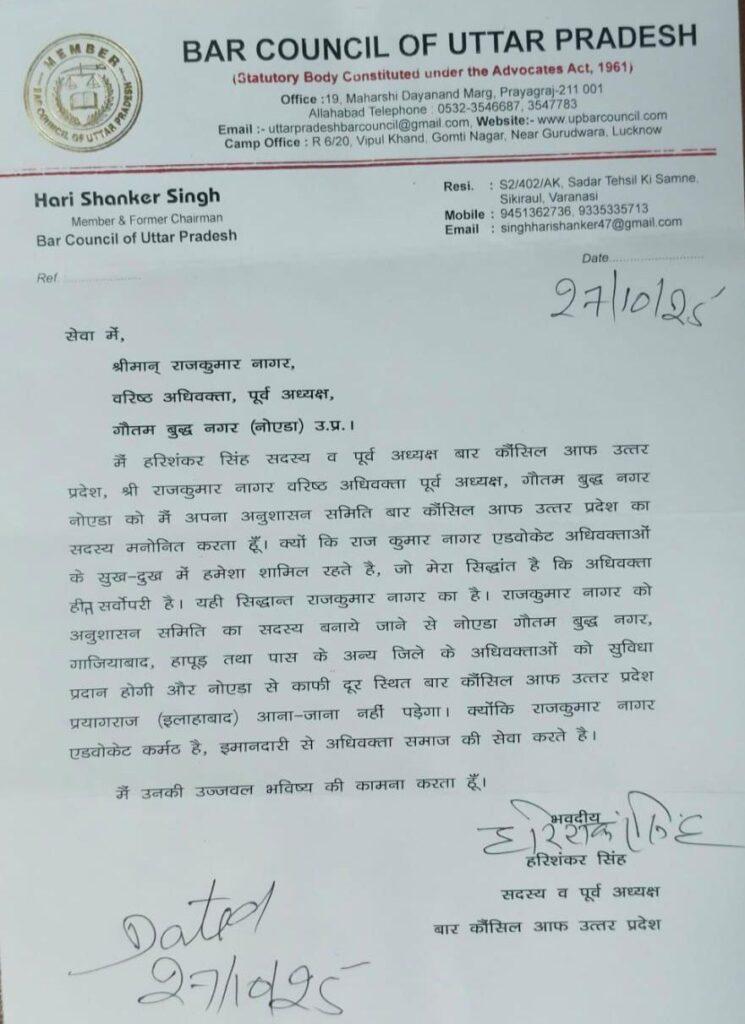 MEMBER
BAR COUNCIL OF UTTAR PRADESH
BAR COUNCIL OF UTTAR PRADESH
(Statutory Body Constituted under the Advocates Act, 1961)
Office :19, Maharshi Dayanand Marg, Prayagraj-211 001
Allahabad Telephone : 0532-3546687, 3547783
Email :- uttarpradeshbarcouncil@gmail.com, Website:- www.upbarcouncil.com
Camp Office : R 6/20, Vipul Khand, Gomti Nagar, Near Gurudwara, Lucknow
Hari Shanker Singh
Member & Former Chairman
Bar Council of Uttar Pradesh
Resi. : S2/402/AK, Sadar Tehsil Ki Samne,
Sikiraul, Varanasi
Mobile : 9451362736, 9335335713
Email : singhharishanker47@gmail.com
Ref. ........................
Date............................
27/10/25
सेवा में,
श्रीमान् राजकुमार नागर,
वरिष्ठ अधिवक्ता, पूर्व अध्यक्ष,
गौतम बुद्ध नगर (नोएडा) उ.प्र.।
मैं हरिशंकर सिंह सदस्य व पूर्व अध्यक्ष बार कौंसिल आफ उत्तर
प्रदेश, श्री राजकुमार नागर वरिष्ठ अधिवक्ता पूर्व अध्यक्ष, गौतम बुद्ध नगर
नोएडा को मैं अपना अनुशासन समिति बार कौंसिल आफ उत्तर प्रदेश का
सदस्य मनोनित करता हूँ। क्यों कि राज कुमार नागर एडवोकेट अधिवक्ताओं
के सुख-दुख में हमेशा शामिल रहते है, जो मेरा सिद्धांत है कि अधिवक्ता
हीत सर्वोपरी है। यही सिद्धान्त राजकुमार नागर का है। राजकुमार नागर को
अनुशासन समिति का सदस्य बनाये जाने से नोएडा गौतम बुद्ध नगर,
गाजियाबाद, हापूड़ तथा पास के अन्य जिले के अधिवक्ताओं को सुविधा
प्रदान होगी और नोएड़ा से काफी दूर स्थित बार कौंसिल आफ उत्तर प्रदेश
प्रयागराज (इलाहाबाद) आना-जाना नहीं पड़ेगा। क्योंकि राजकुमार नागर
एडवोकेट कर्मठ है, इमानदारी से अधिवक्ता समाज की सेवा करते है।
मैं उनकी उज्जवल भविष्य की कामना करता हूँ।
भवदीय
हरिशंकर सिंह
हरिशंकर सिंह
सदस्य व पूर्व अध्यक्ष
बार कौंसिल आफ उत्तर प्रदेश
Dated
27/10/25